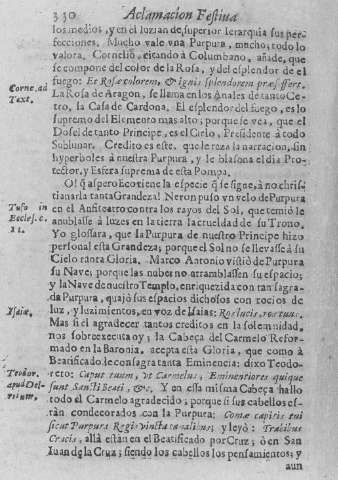 330 Aclamacion Festiva
los medios, y en el luzian de superior Ierarquia sus per-
fecciones. Mucho vale vna Purpura, mucho, todo lo
valora. Cornelio, citando à Columbano, añade, que
Corne. ad Text.
se compone del color de la Rosa, y del esplendor de el
fuego: Et Rosæ colorem, & ignis splendorem præfert.
La Rosa de Aragon, se llama en los Anales de tanto Ce-
tro, la Casa de Cardona. El esplendor del fuego, es lo
supremo del Elemento mas alto; porque se vea, que el
Dosel de tanto Principe, es el Cielo, Presidente à todo
Sublunar. Credito es este, que le roza la narracion, sin
hyperboles à nuestra Purpura, y le blasona el dia Pro-
tector, y Esfera suprema de esta Pompa.
O! q aspero Eco tiene la especie q se sigue, à no chris-
tianarla tanta Grandeza! Neron puso vn velo de Purpura
Tufo in Eccles. c.
en el Anfiteatro contra los rayos del Sol, que temiò le
anublasse à luzes en la tierra la crueldad de su Trono.
Yo glossara, que la Purpura de nuestro Principe hizo
personal esta Grandeza; porque el Sol no se llevasse à su
Cielo tanta Gloria. Marco Antonio vistiò de Purpura
su Nave; porque las nubes no arramblassen su espacio;
y la Nave de nuestro Templo, enriquezida con tan sagra-
da Purpura, quajò sus espacios dichosos con rocios de
Isaiæ.
luz, y luzimientos, en voz de Isaias: Ros lucis, ros tuus.
Mas si el agradecer tantos creditos en la solemnidad,
nos sobreexecuta oy; la Cabeça del Carmelo Refor-
mado en la Baronia, acepta esta Gloria, que como à
Beatificado, le consagra tanta Eminencia: dixo Teodo-
Teodor. apud Del-
reto: Caput tuum, vt Carmelus, Eminentiores quique
sunt Sancti Beati, &c. Y en essa misma Cabeça hallo
todo el Carmelo agradecido; porque si sus cabellos es-
tàn condecorados con la Purpura: Comæ capitis tui
sicut Purpura Regis vincta canalibus; y leyò: Trabibus
Crucis, allà estàn en el Beatificado por Cruz; ò en San
Iuan de la Cruz; siendo los cabellos los pensamientos; y
aun